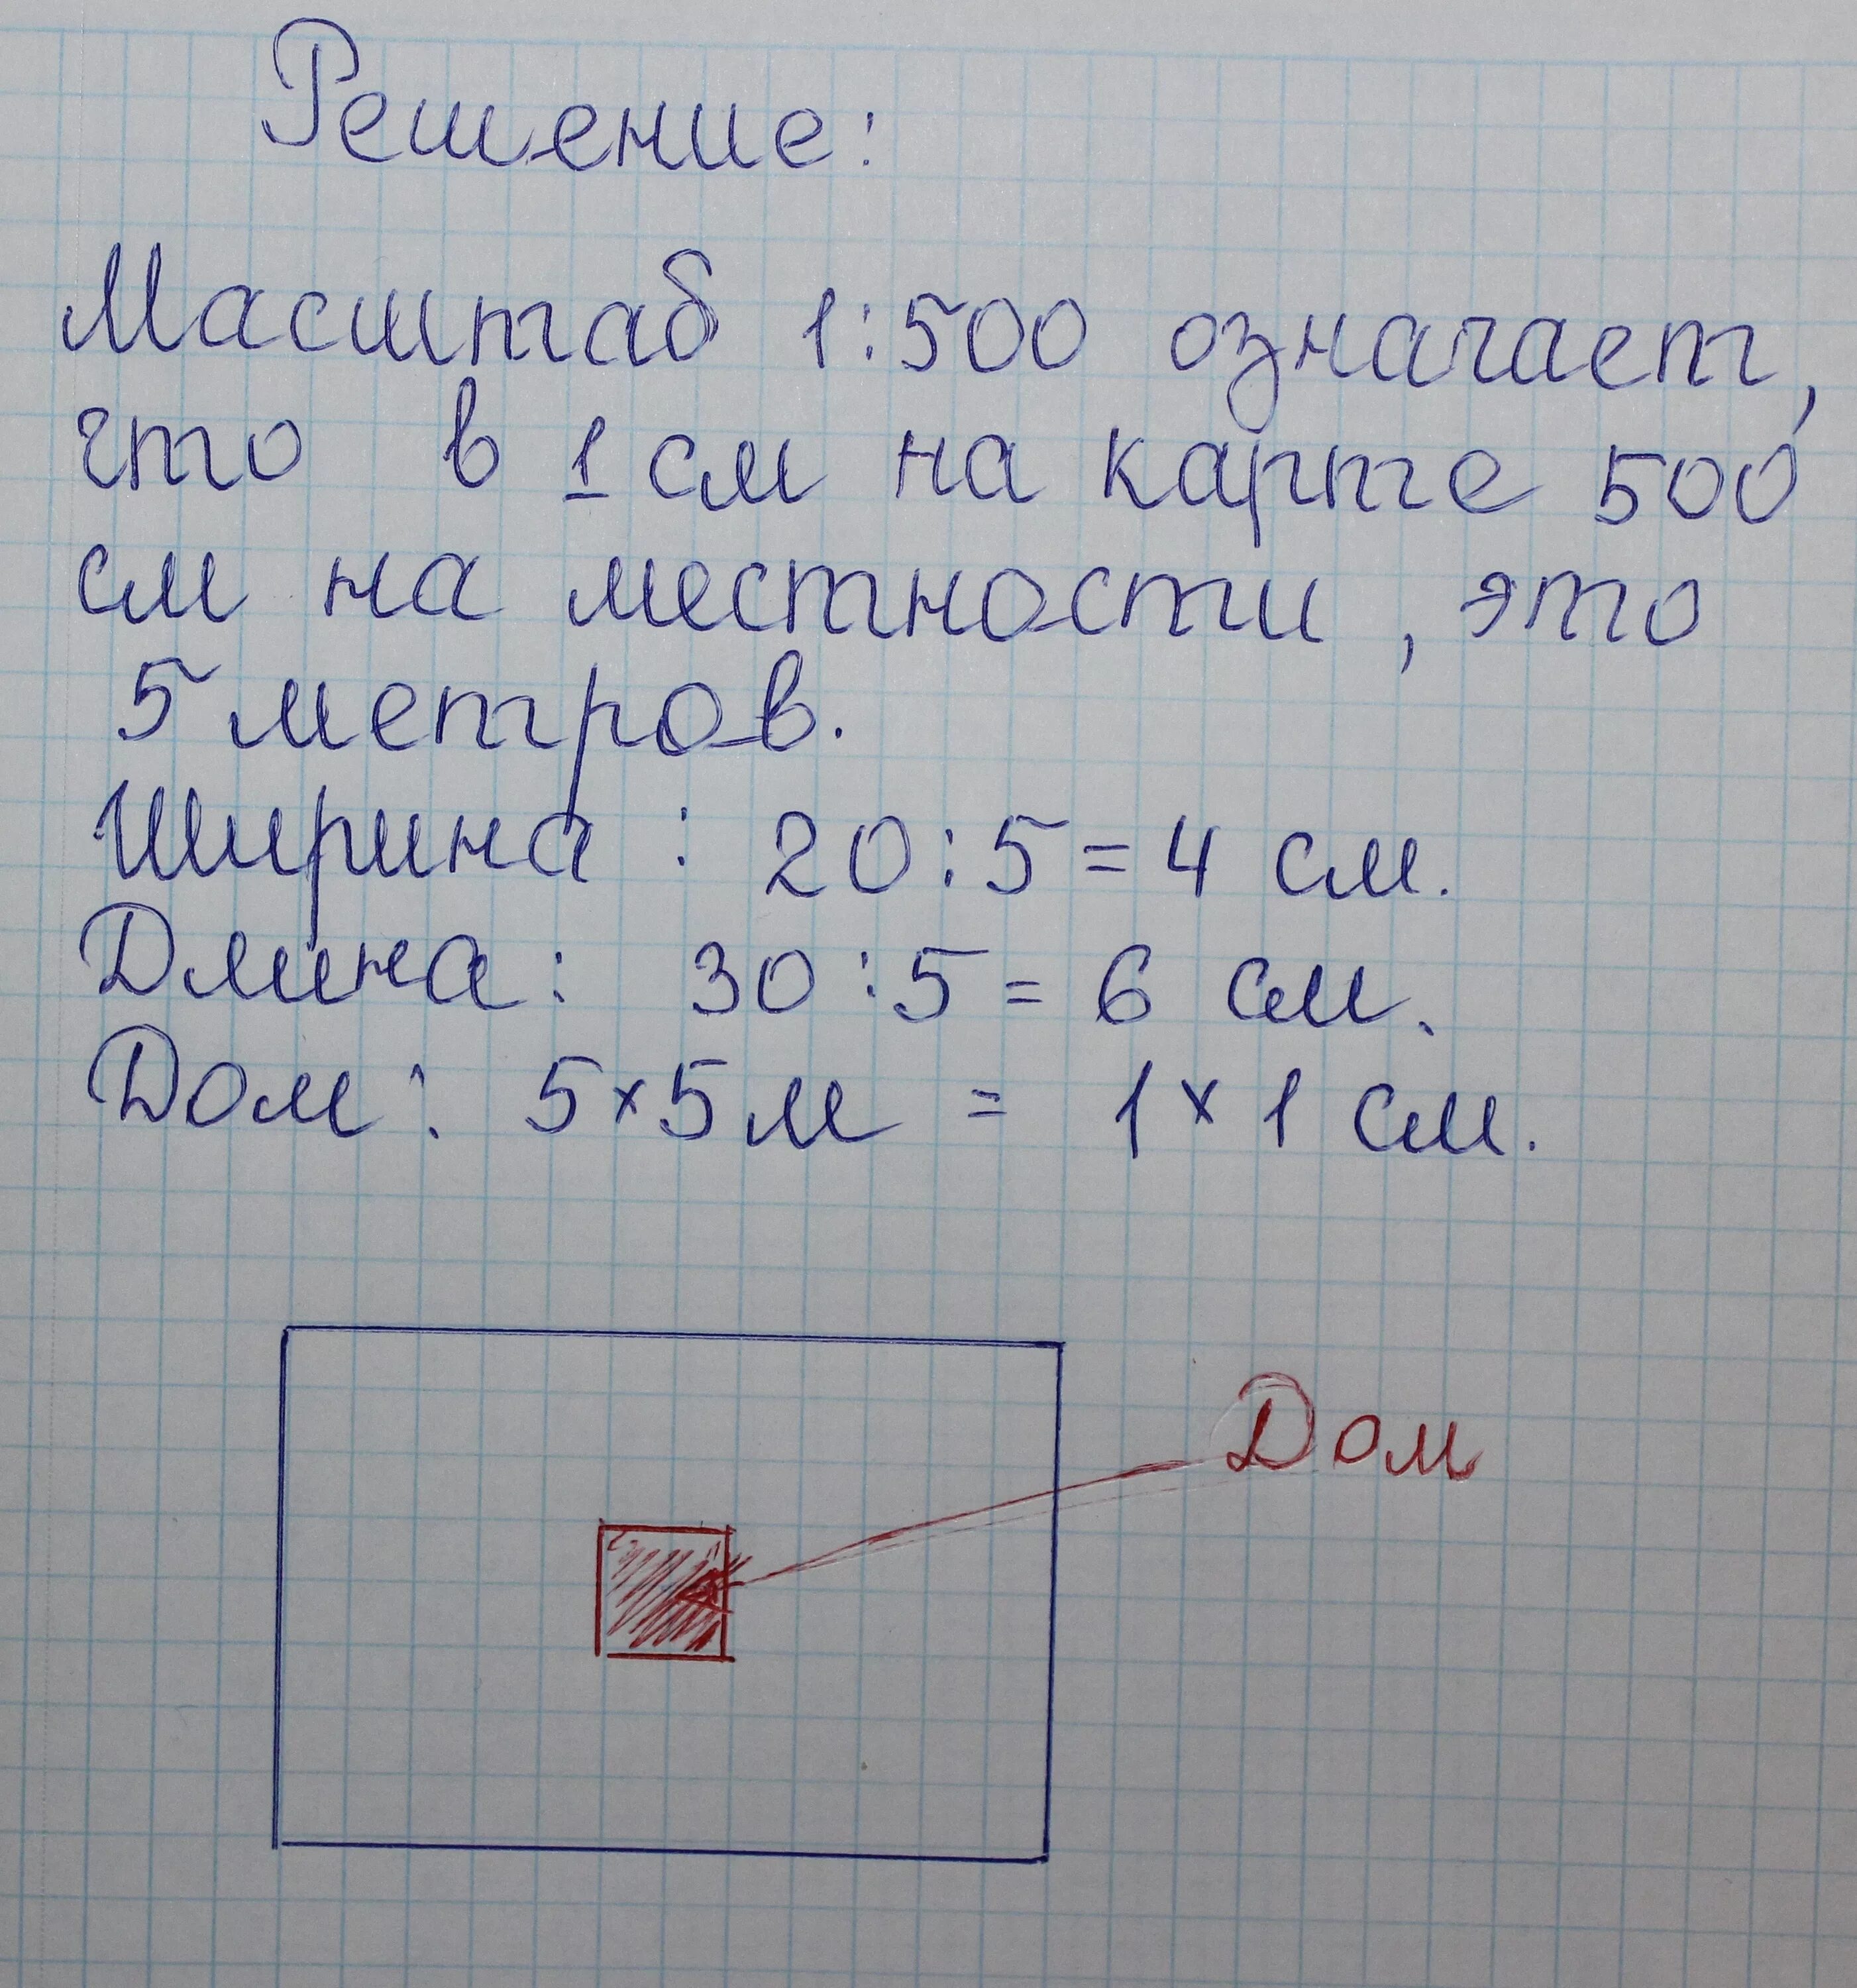 Решение:
Масштаб 1:500 означает,
что в 1 см на карте 500
см на местности, это
5 метров.
Ширина : 20:5=4 см.
Длина: 30:5= 6 см.
Дом: 5×5м = 1×1 см.
Дом